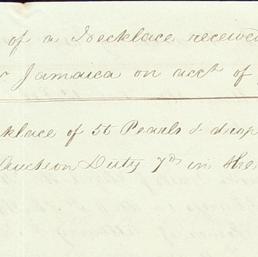 of a Necklace received
Jamaica on acct of
klace of 56 Pearls & drop
Auction Duty 7d in the